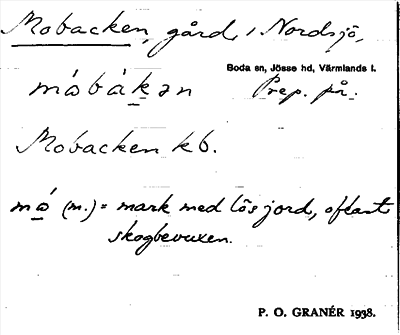 Mobacken, gård i Nordsjö,
Boda sn, Jösse hd, Värmlands l.
måbákən Prep. på.
Mobacken kb.
må (m.) = mark med lös jord, oftast
skogbevuxen.
P. O. GRANÉR 1938.